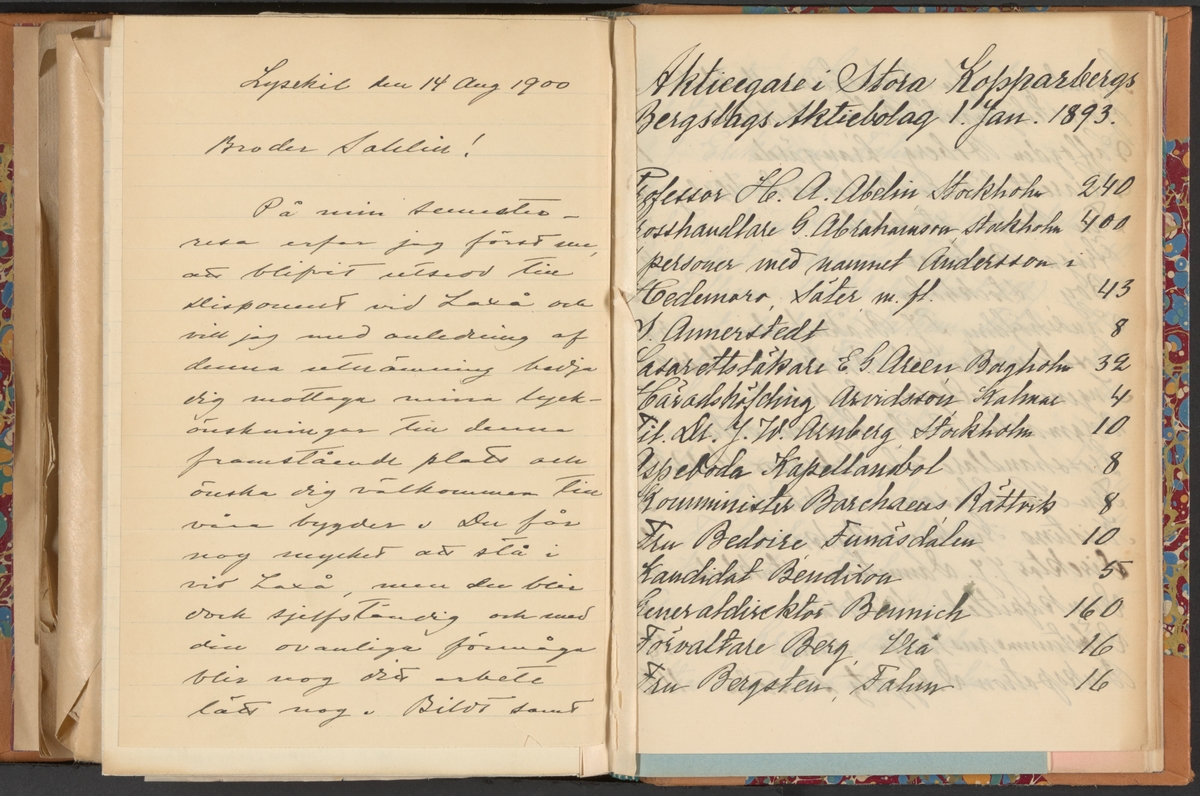 Lysekil den 14 Aug 1900
Broder Sahlin!
På min semester-
resa erfar jag först nu,
att blifvit utsedd till
disponent vid Laxå och
vill jag med anledning af
denna utnämning bedja
dig mottaga mina lyck-
önskningar till denna
framstående plats och
önska dig välkommen till
våra bygder. Du får
nog mycket att stå i
vid Laxå, men du blir
dock sjelfständig och med
din ovanliga förmåga
blir nog ditt arbete
lätt nog. Bildt samt
Aktieegare i Stora Kopparbergs
Bergslags Aktiebolag 1. Jan. 1893.
Professor H. A. Abelin Stockholm 240
Grosshandlare G. Abrahamson Stockholm 400
personer med namnet Andersson i
Hedemora, Säter m. fl. 43
Annerstedt 8
Lasarettsläkare E G. Areen Borgholm 32
Häradshöfding Arvidsson Kalmar 4
Fil. Dr. J. W. Arnberg Stockholm 10
Aspeboda Kapellansbol 8
Komminister Barchaeus Rättvik 8
Fru Bedoire Funäsdalen 10
Kandidat Bendixon 5
Generaldirektör Bennich 160
Förvaltare Berg, Vrå 16
Fru Bergsten, Falun 16